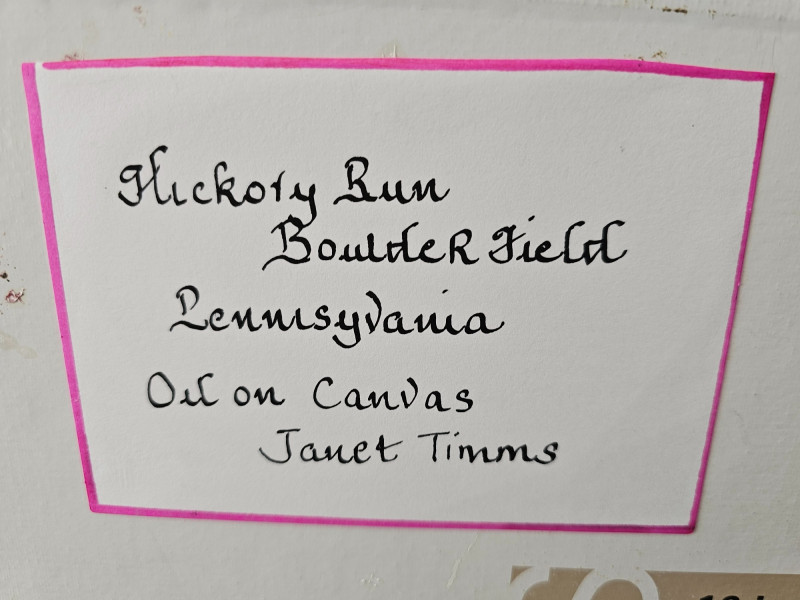 Hickory Run
Boulder Field
Pennsyvania
Oil on Canvas
Janet Timms